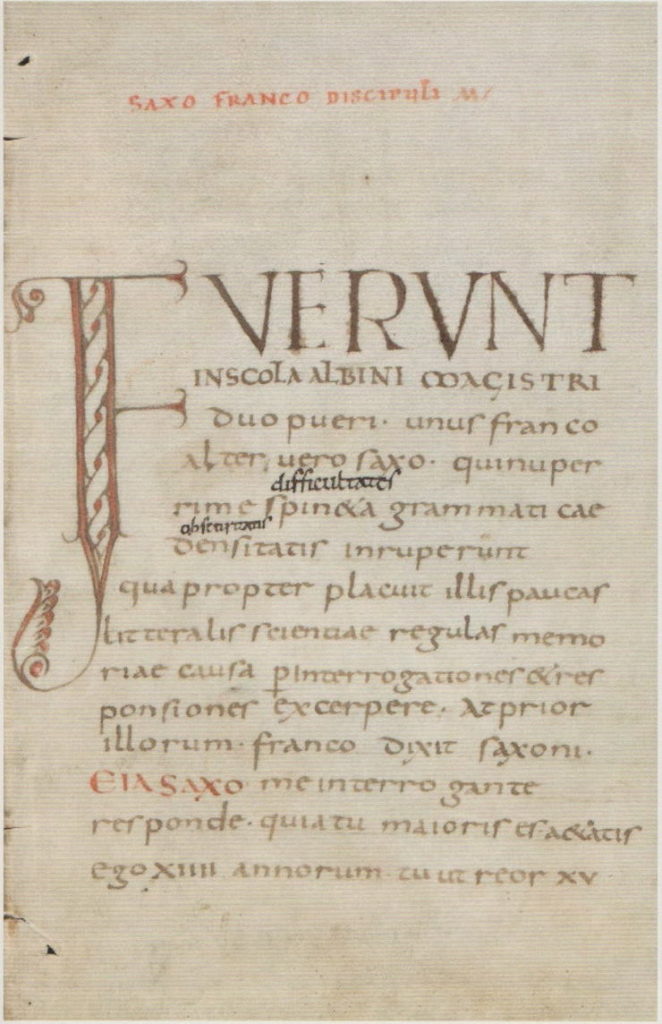 SAXO FRANCO DISCIPULI
FUERUNT
IN SCOLA ALBINI MAGISTRI
duo pueri · unus franco
alter vero saxo · qui nuper
difficultates
rime spineta grammaticae
obscuritatis
densitatis inruperunt
quapropter placuit illis paucas
litteralis scientiae regulas memo
riae causa p interrogationes & res
ponsiones excerpere · At prior
illorum · franco dixit saxoni ·
EIA SAXO me interrogante
responde · quia tu maioris es · aetatis
ego XIIII annorum · tu ut reor XV